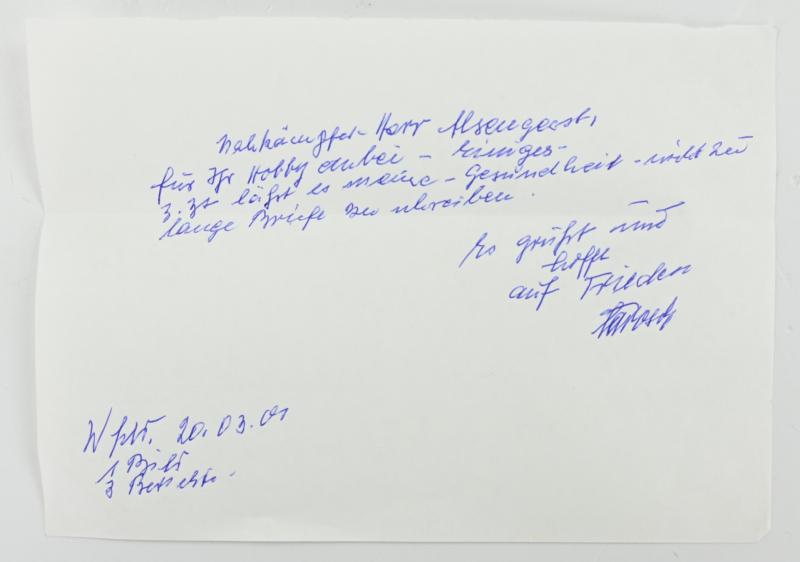 Nahkämpfer- Herr
für Ihr Hobby anbei - Einiges-
z. Zt läßt es meine - Gesundheit - nicht zu
lange Briefe zu schreiben.
Es grüßt und
hofft
auf Frieden
20.03.01
1 Bild
3 Berichte